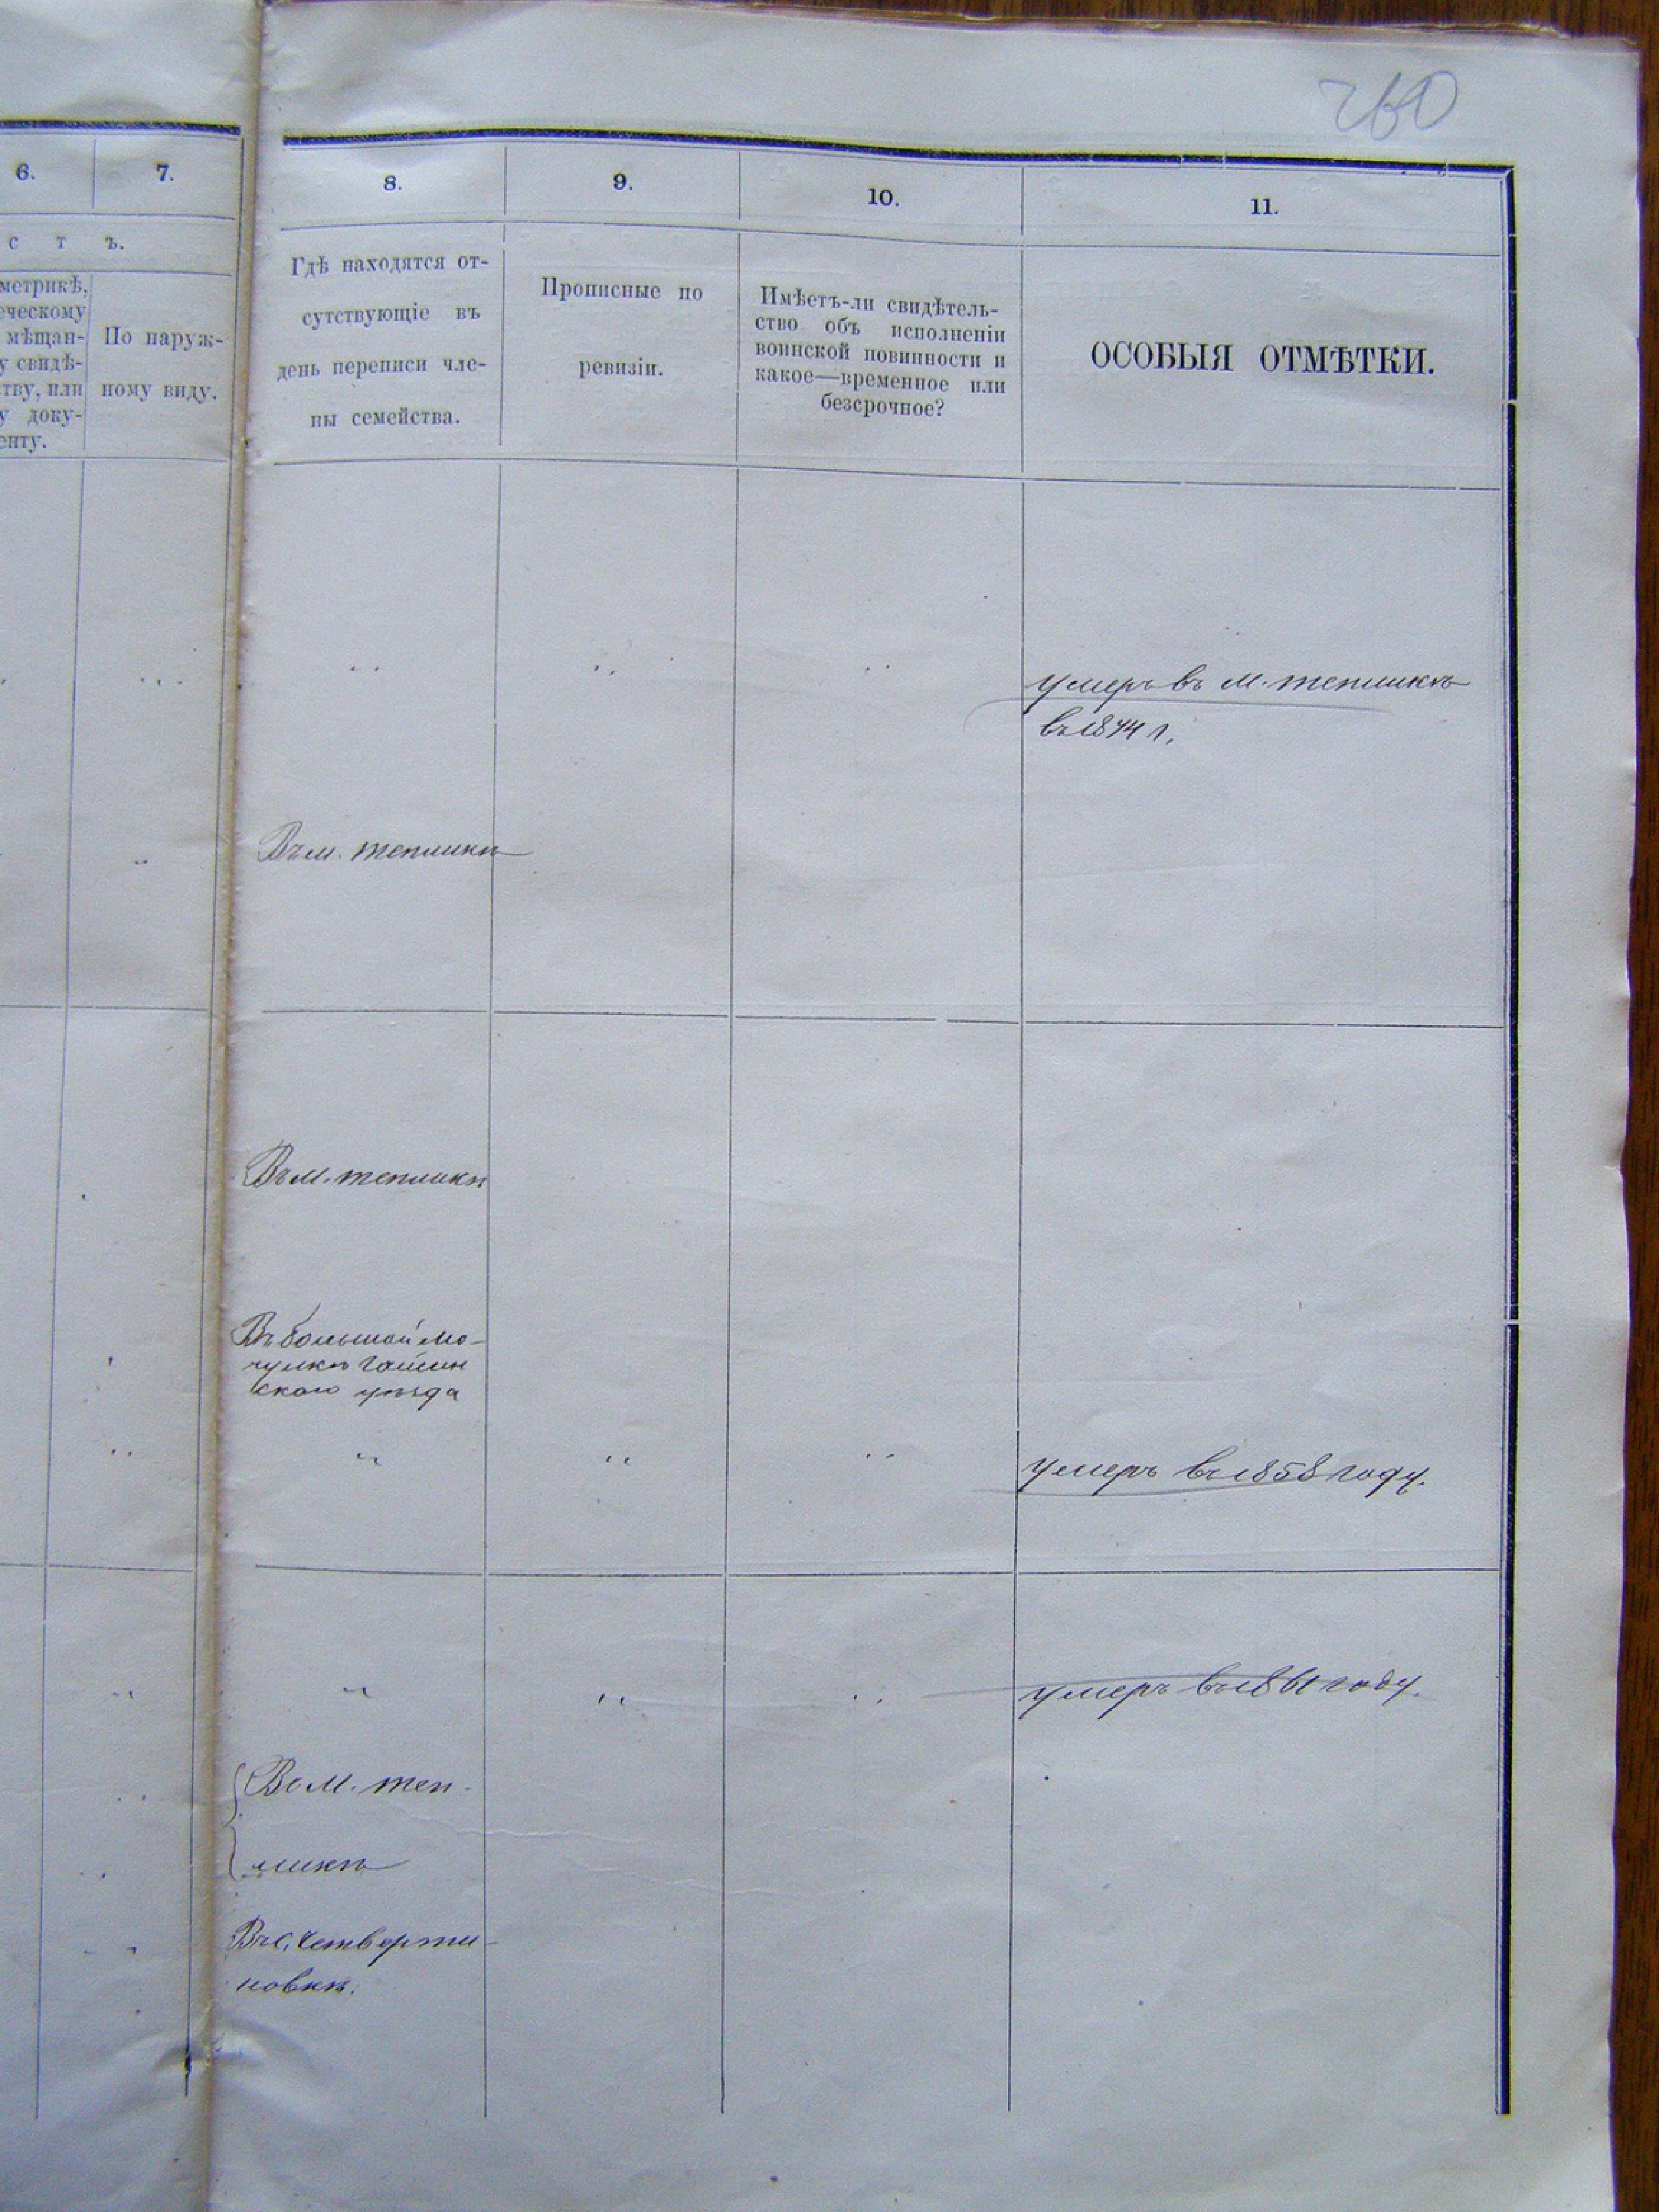 260
6.
7.
8.
9.
10.
11.
с т ъ.
метрикѣ,
ческому
мѣщан-
у свидѣ-
ству, или
у доку-
енту.
По наруж-
ному виду.
Гдѣ находятся от-
сутствующіе въ
день переписи чле-
ны семейства.
Прописные по
ревизіи.
Имѣетъ-ли свидѣтель-
ство объ исполненіи
воинской повинности и
какое—временное или
безсрочное?
ОСОБЫЯ ОТМѢТКИ.
умеръ въ м. тепликѣ
въ 1844 г.
Въ м. тепликѣ
Въ м. тепликѣ
Въ большой Мо-
чулкѣ Гайсин
скаго уѣзда
умеръ въ 1858 году.
умеръ въ 1861 году.
Въ м. теп-
ликѣ
Въ с. Четверти-
новкѣ.